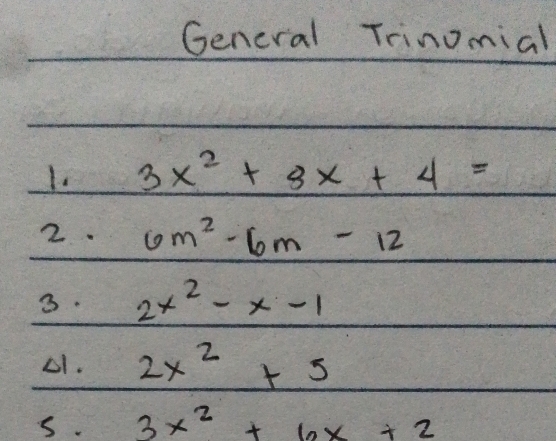 General Trinomial
1. 3x² + 8x + 4 =
2. 6m² - 6m - 12
3. 2x² - x - 1
4. 2x² + 5
5. 3x² + 6x + 2